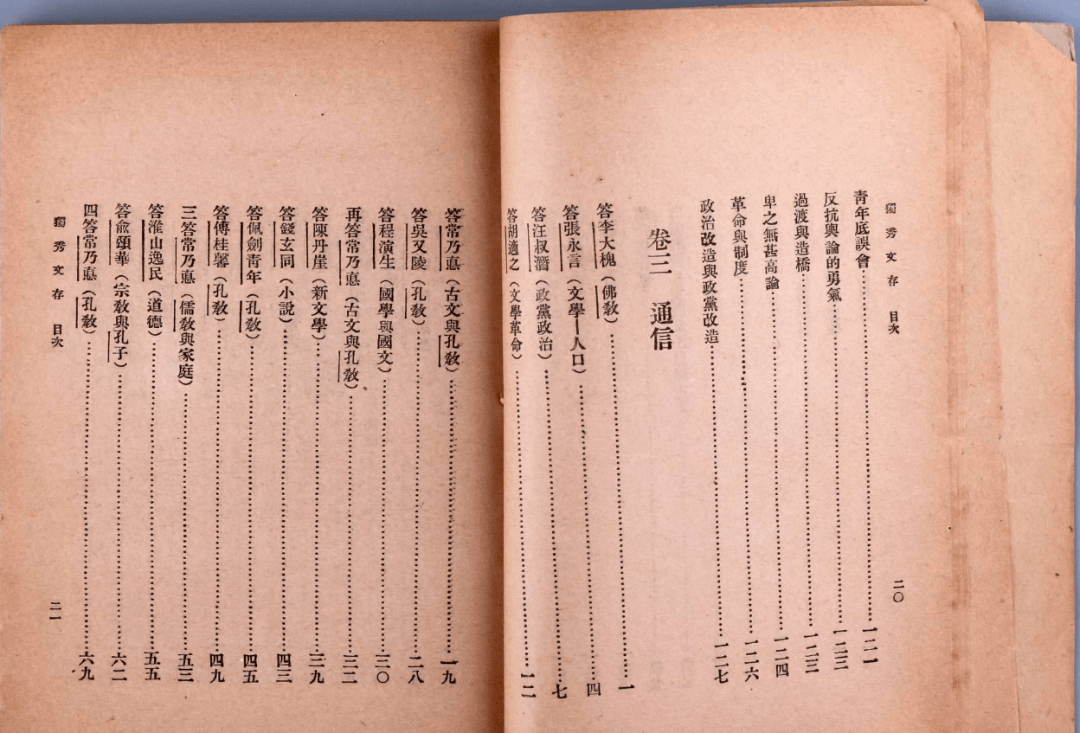 獨秀文存 目次
二〇
青年底誤會……一二一
反抗輿論的勇氣……一二三
過渡與造橋……一二三
卑之無甚高論……一二四
革命與制度……一二六
政治改造與政黨改造……一二七
卷三 通信
答李大槐(佛敎)……一
答張永言(文學—人口)……四
答汪叔潛(政黨政治)……七
答胡適之(文學革命)……一二
答常乃悳(古文與孔敎)……一九
答吳又陵(孔敎)……二八
答程演生(國學與國文)……三〇
再答常乃悳(古文與孔敎)……三二
答陳丹崖(新文學)……三九
答錢玄同(小說)……四三
答佩劍靑年(孔敎)……四五
答傅桂馨(孔敎)……四九
三答常乃悳(儒敎與家庭)……五三
答淮山逸民(道德)……五五
答俞頌華(宗敎與孔子)……六二
四答常乃悳(孔敎)……六九
獨秀文存 目次
二一